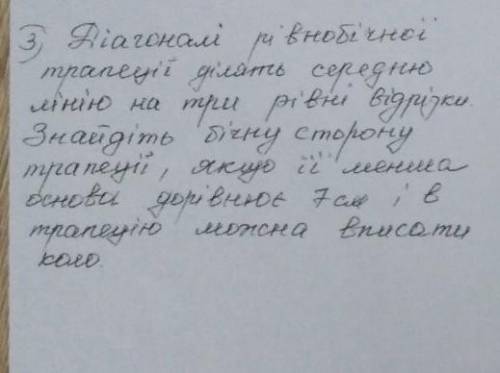 3) Діагоналі рівнобічної
трапеції ділять середню
лінію на три рівні відрізки.
Знайдіть бічну сторону
трапеції, якщо її менша
основа дорівнює 7см і в
трапецію можна вписати
коло.